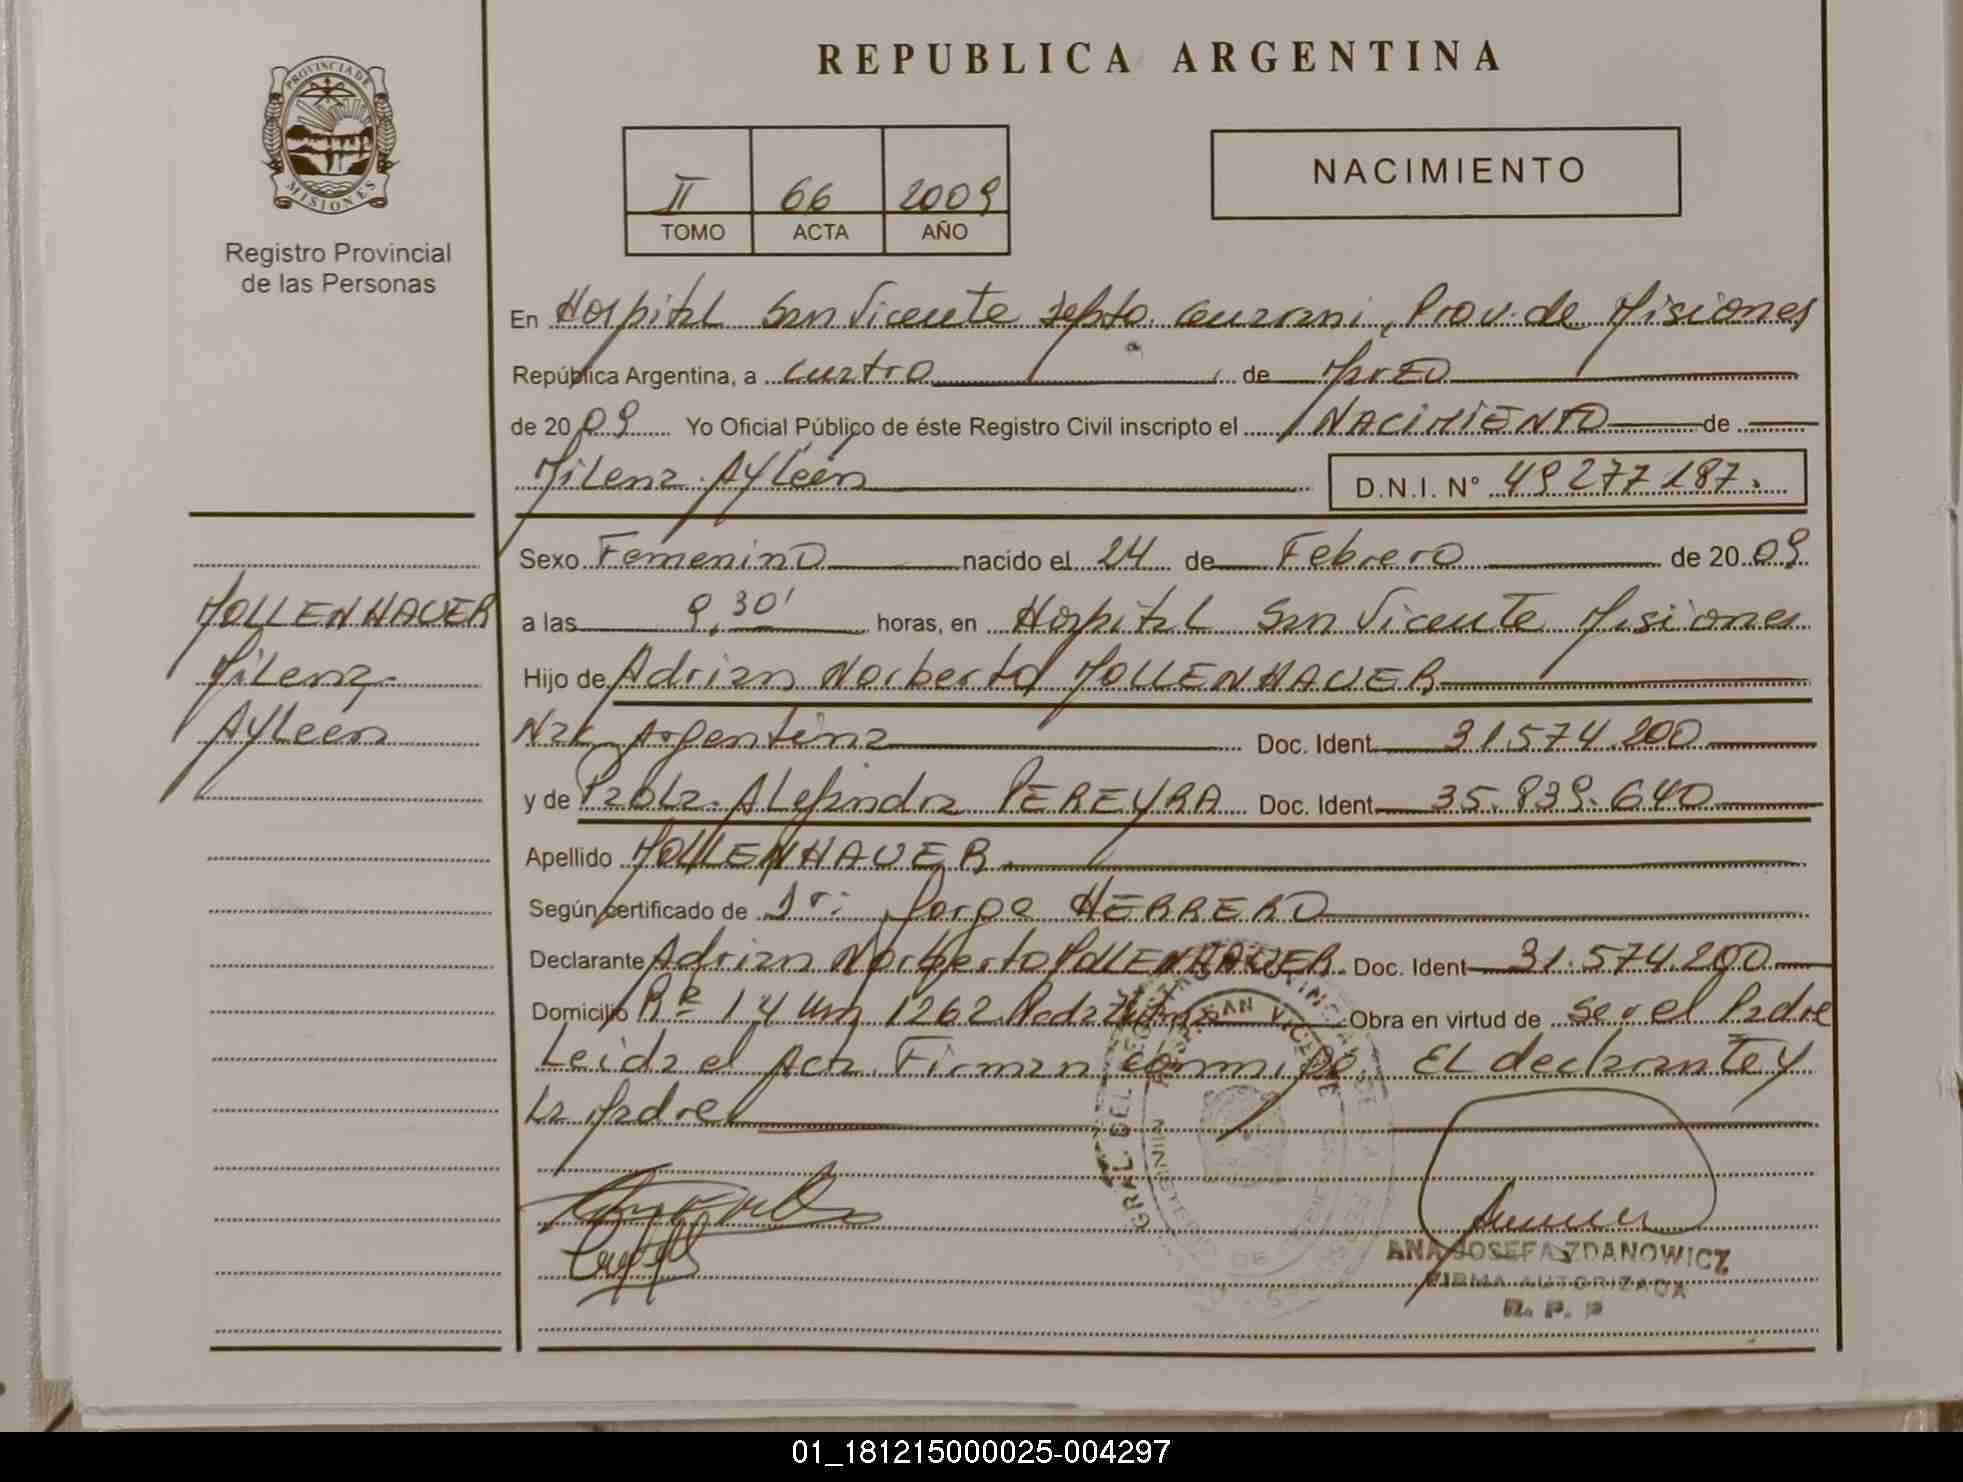 REPUBLICA ARGENTINA
PROVINCIA DE
MISIONES
Registro Provincial
de las Personas
II 66 2009
TOMO ACTA AÑO
NACIMIENTO
En Hospital San Vicente Depto. Guarani, Prov. de Misiones
República Argentina, a cuatro de Marzo
de 2009 Yo Oficial Público de éste Registro Civil inscripto el NACIMIENTO de
Milena Ayleen D.N.I. N° 49277187.
Sexo Femenino nacido el 24 de Febrero de 2009
a las 9,30' horas, en Hospital San Vicente Misiones
Hijo de Adrian Norberto MOLLENHAUER
Nac. Argentina Doc. Ident 31.574.200
y de Paola Alejandra PEREYRA Doc. Ident 35.939.640
Apellido MOLLENHAUER
Según certificado de Dr: Jorge HERRERO
Declarante Adrian Norberto MOLLENHAUER. Doc. Ident 31.574.200
Domicilio Ra 14 km 1262 Obra en virtud de ser el Padre
Leida el Acta Firman conmigo. El declarante y
la Madre
MOLLENHAUER
Milena
Ayleen
SAN VICENTE
ANA JOSEFA ZDANOWICZ
FIRMA AUTORIZADA
R. P. P
01_181215000025-004297